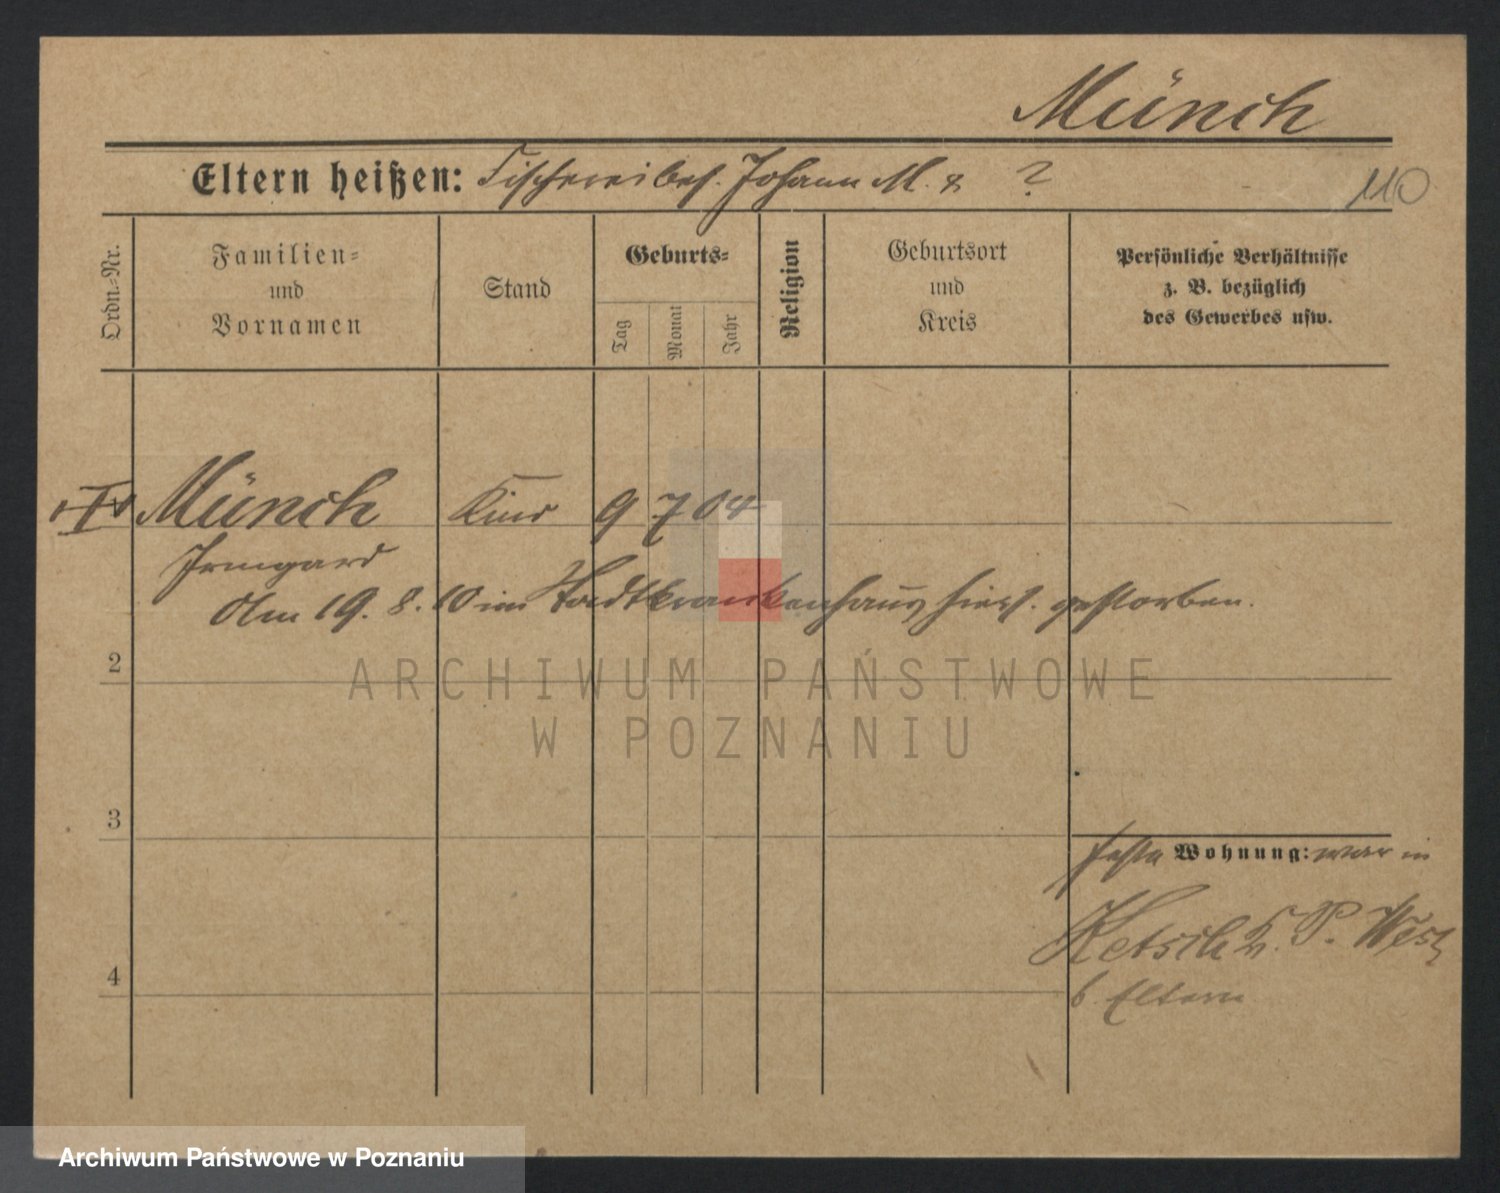 Münch
Eltern heißen: Fischereibes. Johann M. & ?
110
Ordn.-Nr.
Familien-
und
Vornamen
Stand
Geburts-
Tag
Monat
Jahr
Religion
Geburtsort
und
Kreis
Persönliche Verhältnisse
z. B. bezüglich
des Gewerbes usw.
Münch Kind 9 7 04
Irmgard
Am 19. 8. 10 im Stadtkrankenhaus hiers. gestorben.
2
ARCHIWUM PAŃSTWOWE
W POZNANIU
3
feste Wohnung: war in
Ketsch K. P. West
b. Eltern
4
Archiwum Państwowe w Poznaniu